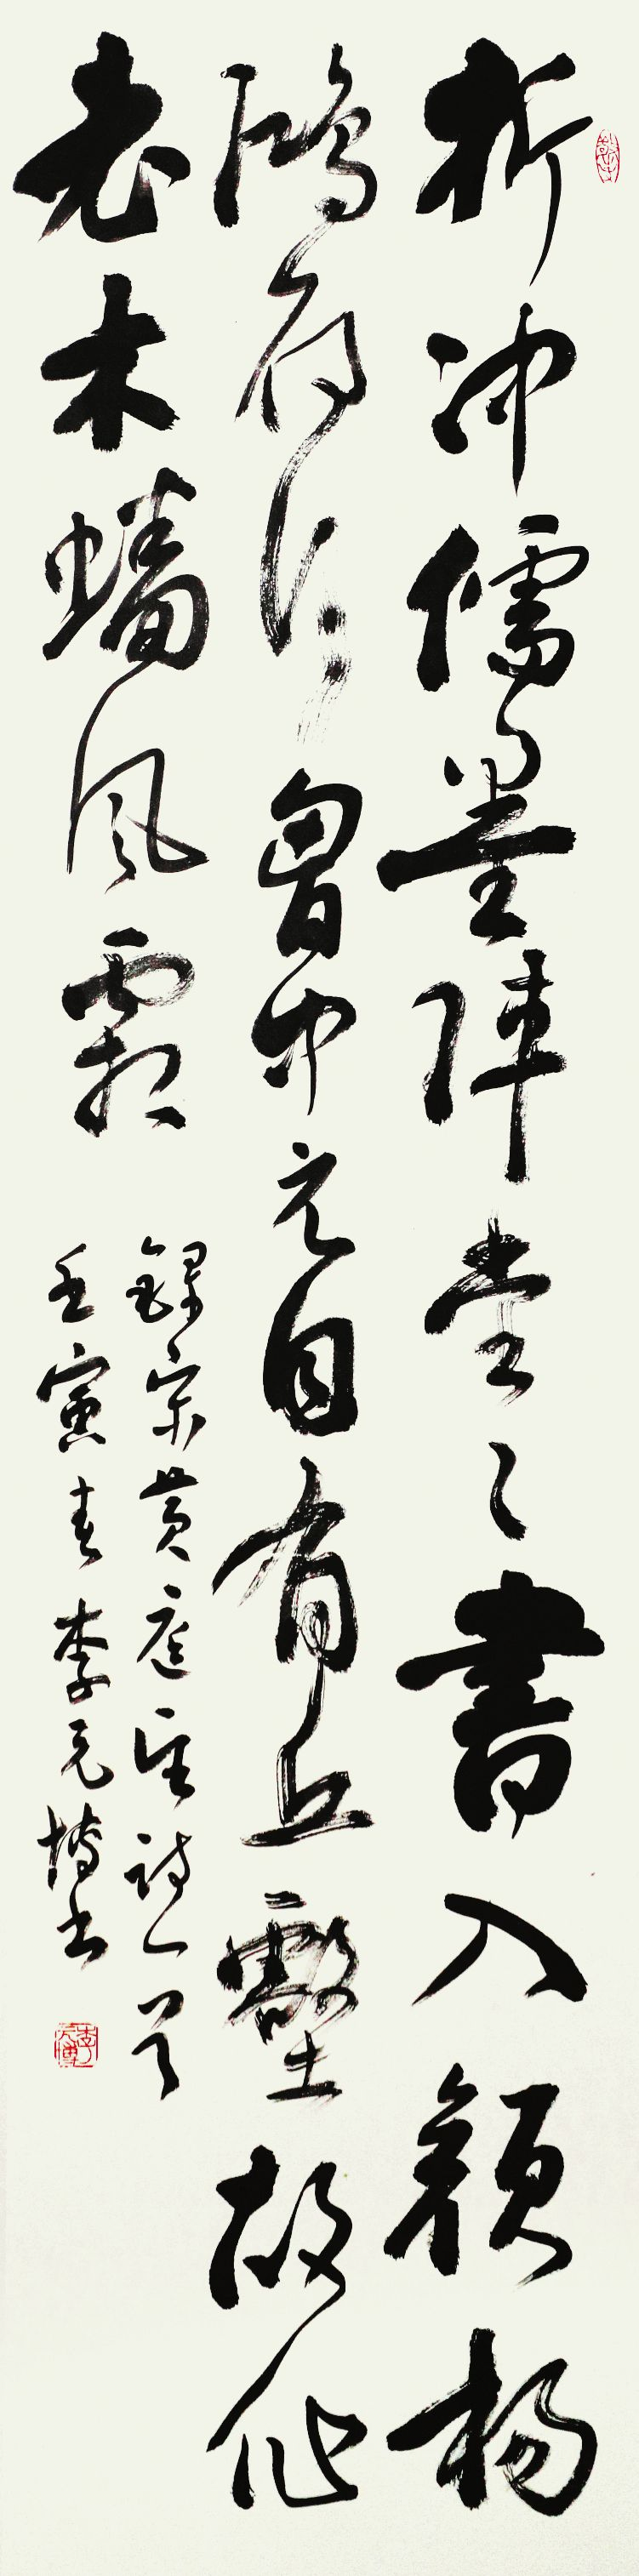 折冲儒墨阵堂々書入颜杨
鴻雁行胷中元自有丘壑故作
老木蟠风霜
錄宋黄庭坚诗一首
壬寅春李元博书